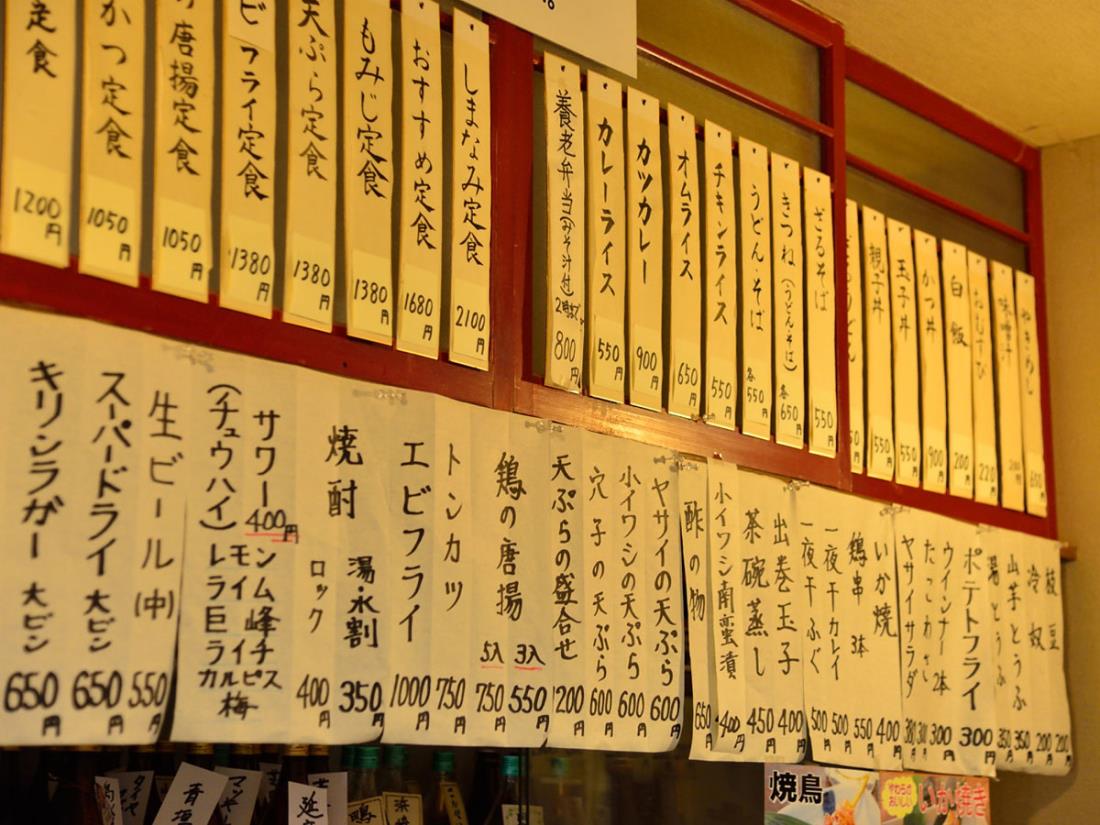 やきめし
味噌汁
おむすび 220円
白飯 200円
かつ丼 900円
玉子丼 550円
親子丼 550円
ざるそば 550円
きつね(うどん・そば) 各650円
うどん・そば 各550円
チキンライス 550円
オムライス 650円
カツカレー 900円
カレーライス 550円
養老弁当(みそ汁付) 800円
しまなみ定食 2100円
おすすめ定食 1680円
もみじ定食 1380円
天ぷら定食 1380円
ビフライ定食 1380円
唐揚定食 1050円
かつ定食 1050円
定食 1200円
枝豆 200円
冷奴 200円
山芋とうふ 350円
湯とうふ 350円
ポテトフライ 300円
ウインナー2本 300円
たこわさ
ヤサイサラダ 380円
いか焼 400円
鶏串3本 550円
一夜干カレイ 500円
一夜干ふぐ 500円
出巻玉子 400円
茶碗蒸し 450円
小イワシ南蛮漬 400円
酢の物 650円
ヤサイの天ぷら 600円
小イワシの天ぷら 600円
穴子の天ぷら 600円
天ぷらの盛合せ 1200円
鶏の唐揚 3入 550円
5入 750円
トンカツ 750円
エビフライ 1000円
焼酎
湯・水割 350円
ロック 400円
サワー 400円
(チュウハイ)
レモン
ライム
巨峰
ライチ
カルピス
梅
生ビール(中) 550円
スーパードライ 大ビン 650円
キリンラガー 大ビン 650円
焼鳥
やわらかおいしい
いか焼き